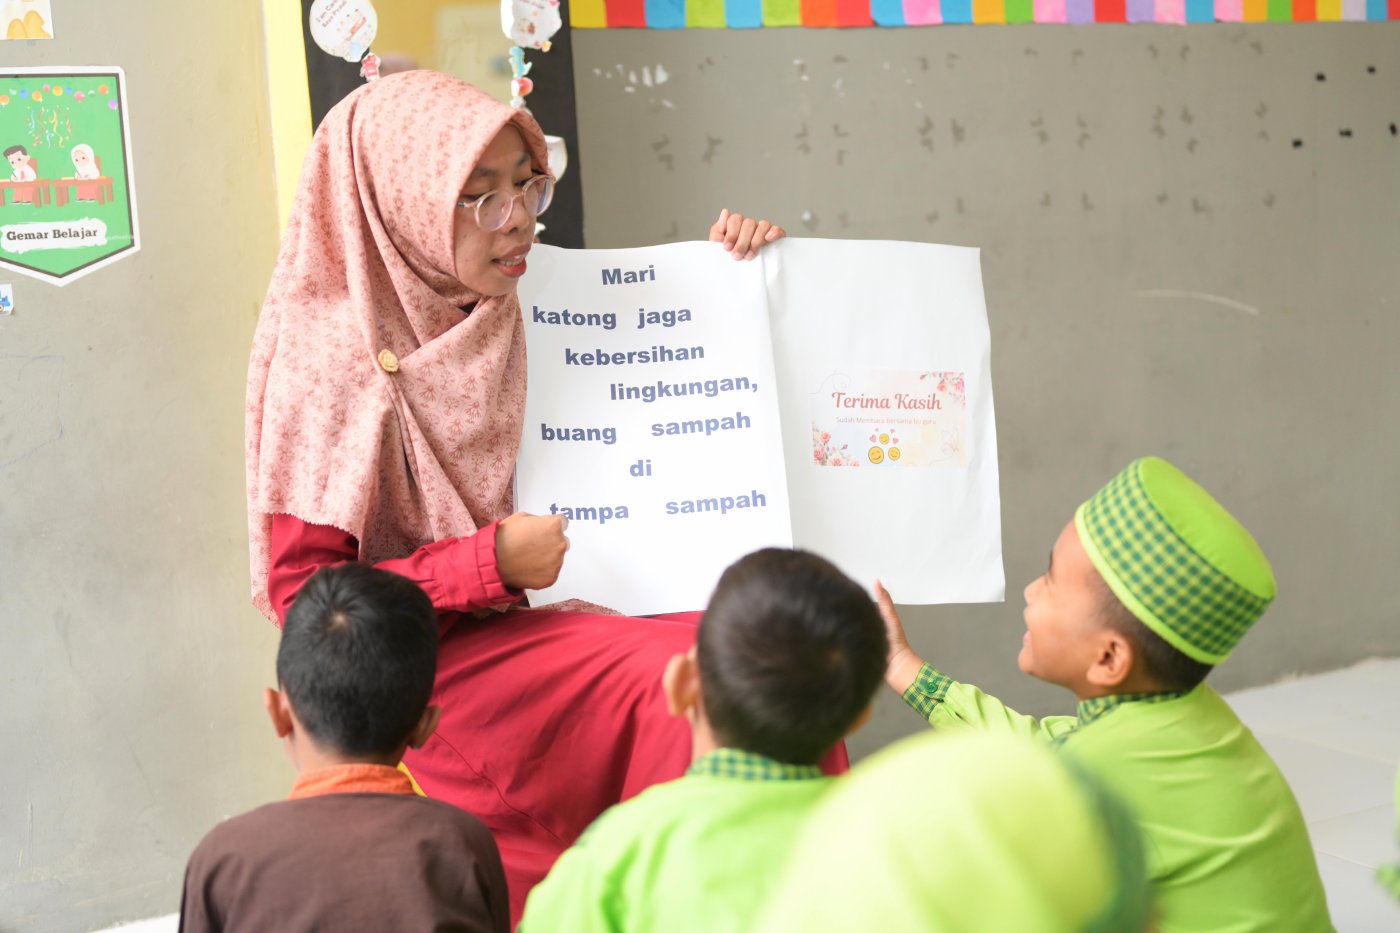 Gemar Belajar
Mari
katong jaga
kebersihan
lingkungan,
buang sampah
di
tampa sampah
Terima Kasih
Sudah Membaca bersama bu guru